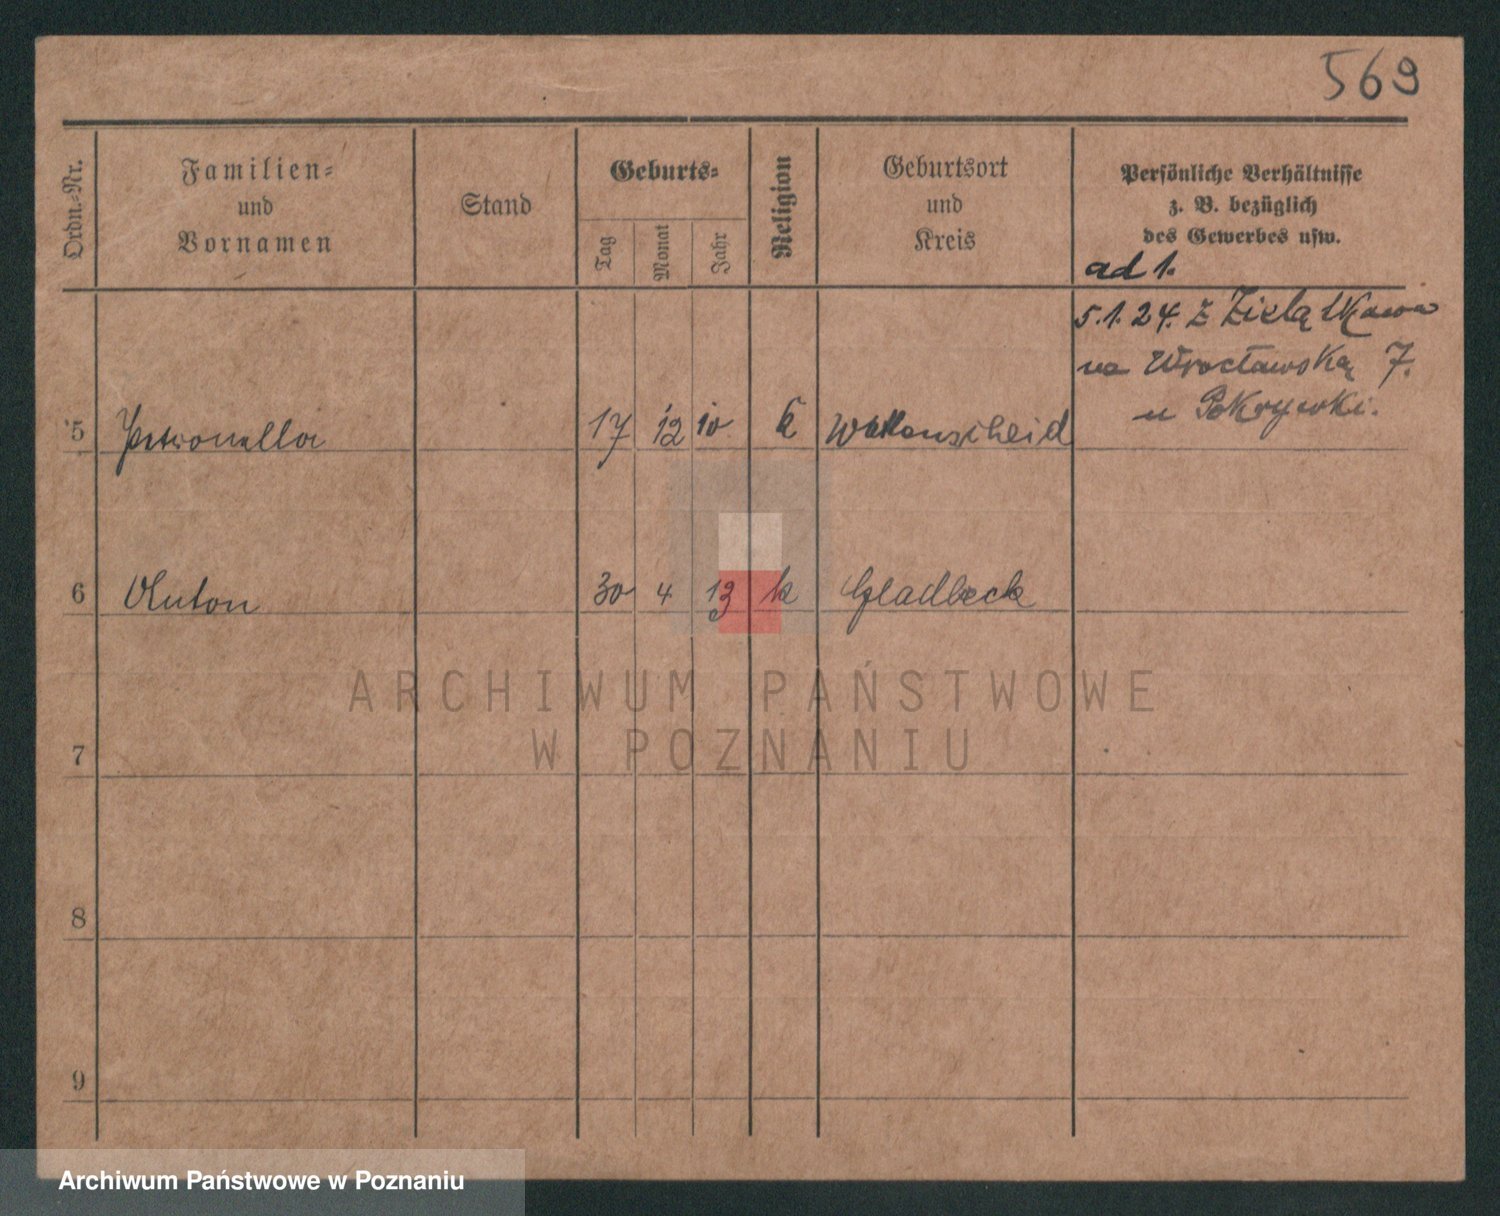 569
Ordn.-Nr.
Familien-
und
Vornamen
Stand
Geburts-
Tag
Monat
Jahr
Religion
Geburtsort
und
Kreis
Persönliche Verhältnisse
z. B. bezüglich
des Gewerbes usw.
ad 1.
5.1.24. z Zielątkowa
na Wrocławską 7.
u Pokrywki.
5 Petronella 17 12 10 k Wattenscheid
6 Anton 30 4 13 k Gladbeck
ARCHIWUM PAŃSTWOWE
W POZNANIU
7
8
9
Archiwum Państwowe w Poznaniu